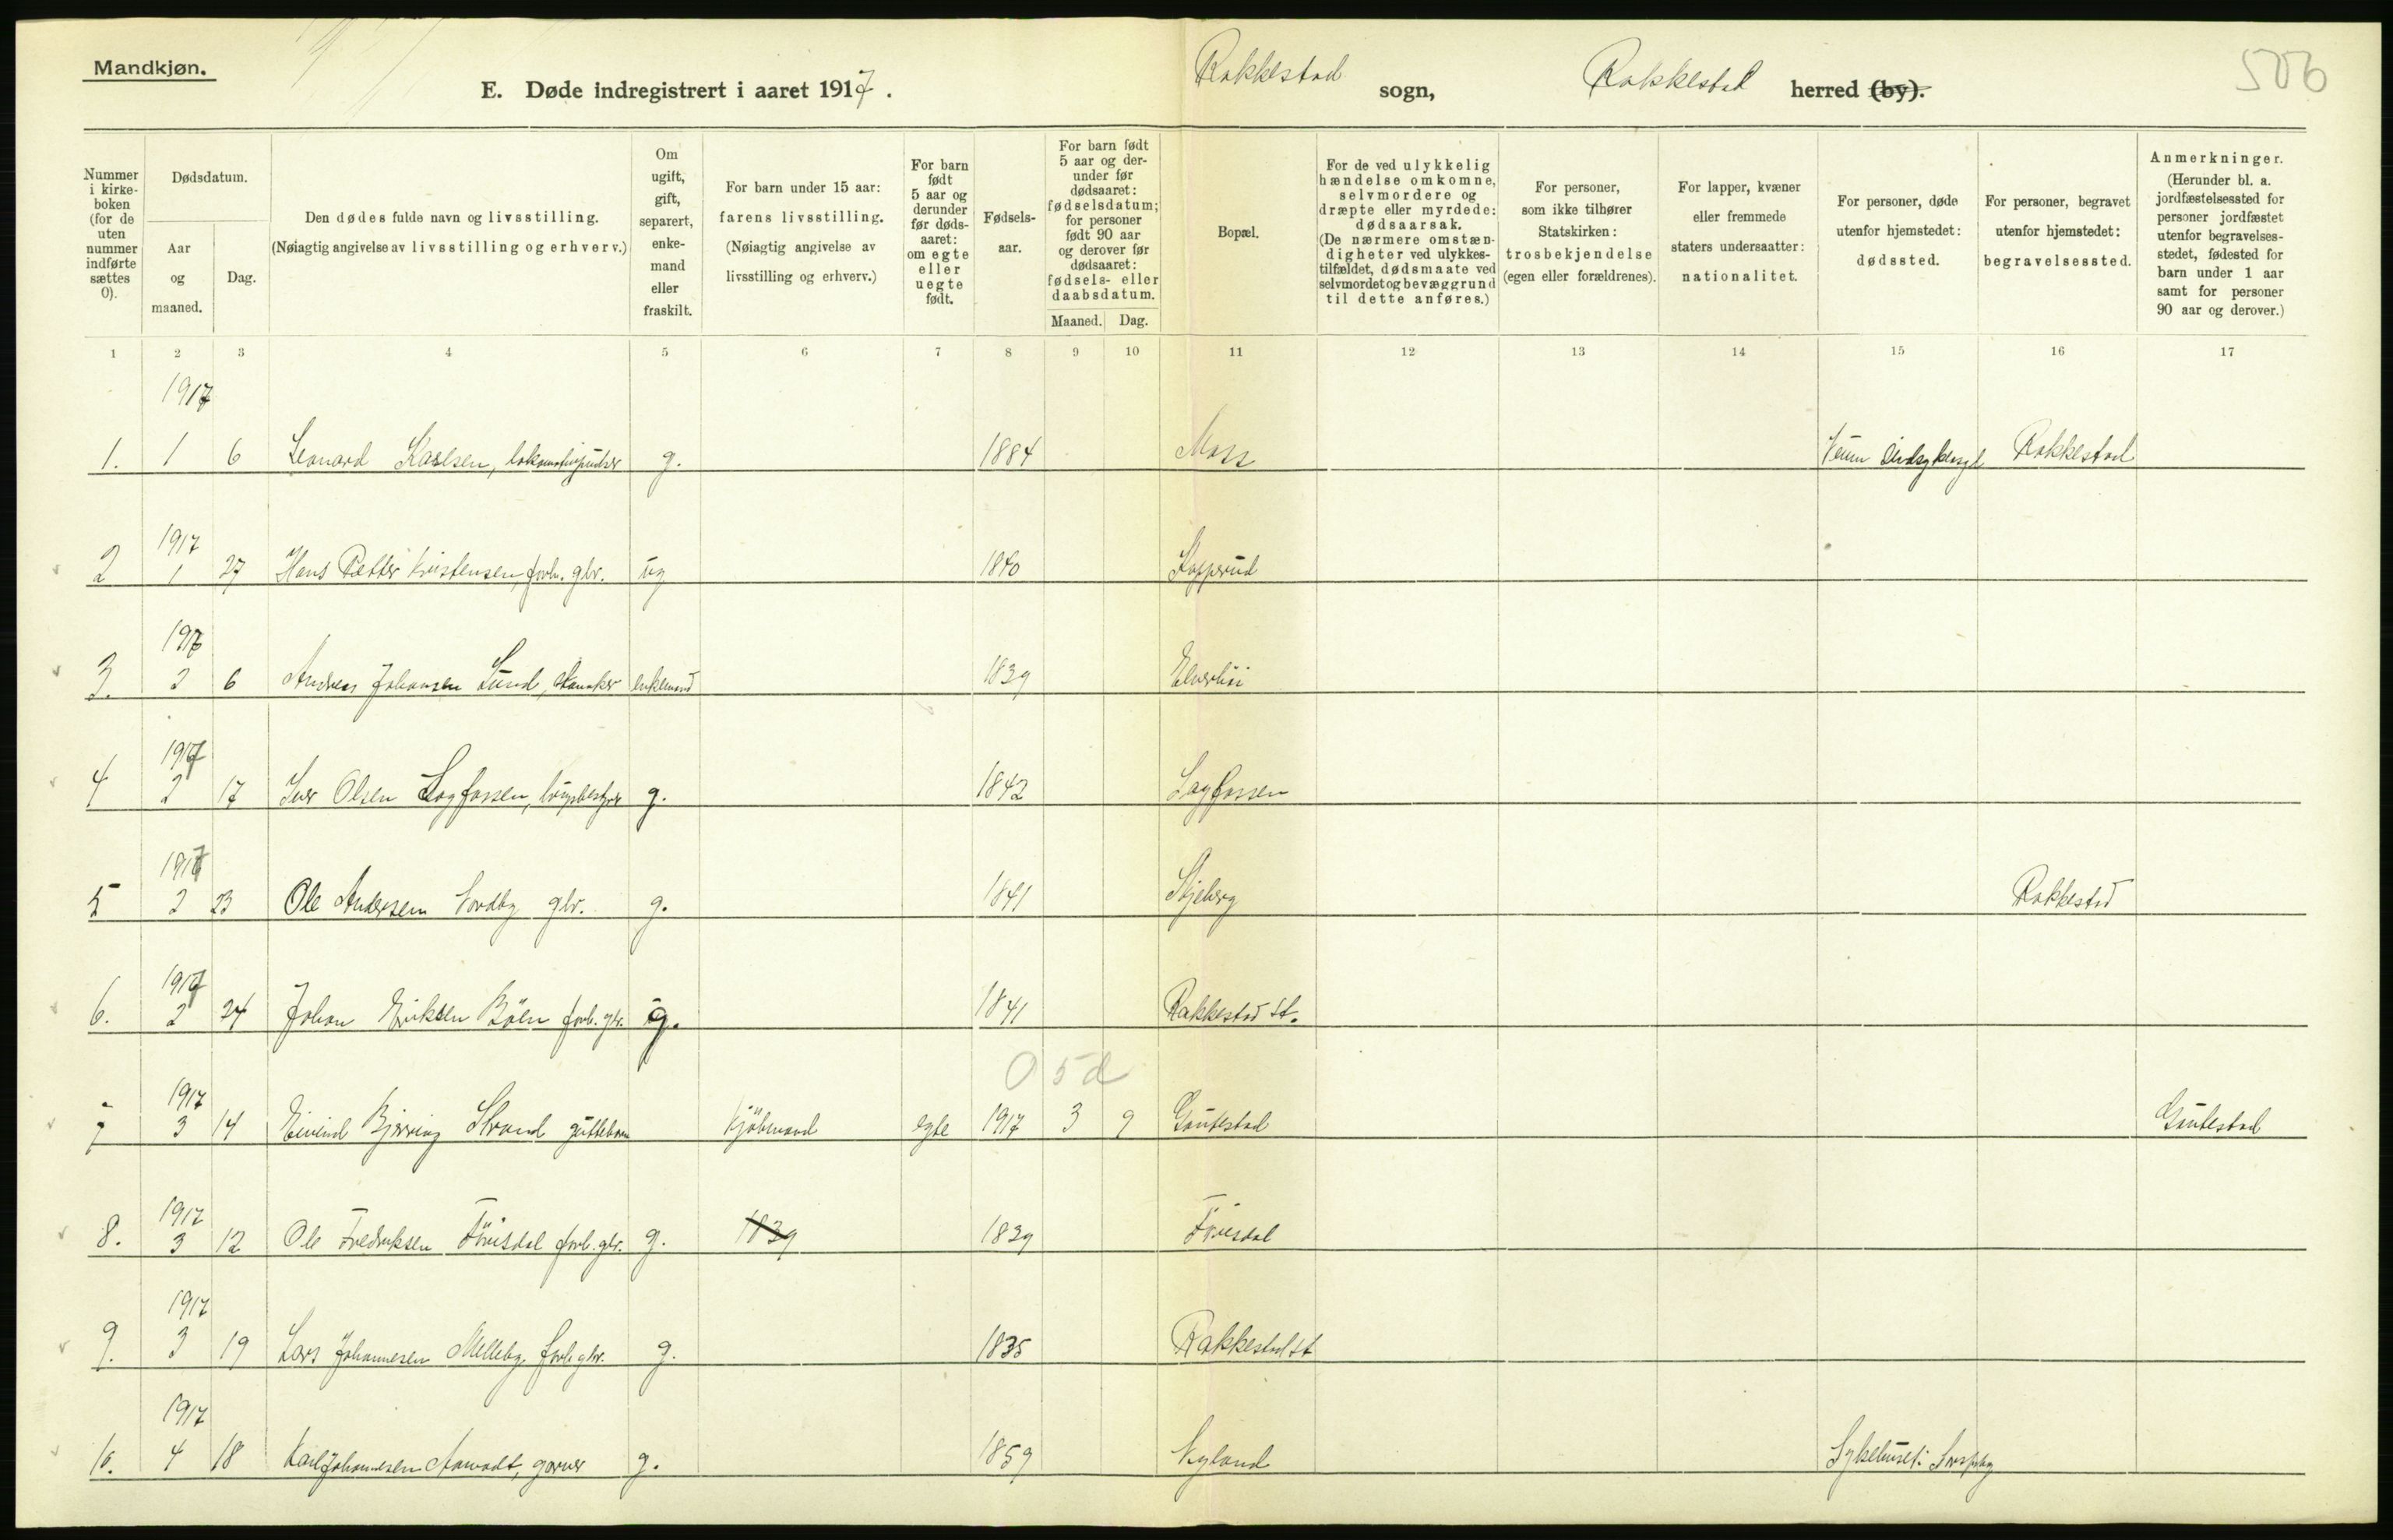 Mandkjøn.
E. Døde indregistrert i aaret 1917. Rakkestad sogn, Rakkestad herred (by). 506
Nummer i kirke-boken (for de uten nummer indførte sættes 0).
Dødsdatum.
Aar og maaned.
Dag.
Den dødes fulde navn og livsstilling.
(Nøiagtig angivelse av livsstilling og erhverv.)
Om ugift, gift, separert, enke-mand eller fraskilt.
For barn under 15 aar: farens livsstilling.
(Nøiagtig angivelse av livsstilling og erhverv.)
For barn født 5 aar og derunder før døds-aaret: om egte eller uegte født.
Fødsels-aar.
For barn født 5 aar og der-under før dødsaaret: fødselsdatum; for personer født 90 aar og derover før dødsaaret: fødsels- eller daabsdatum.
Maaned. Dag.
Bopæl.
For de ved ulykkelig hændelse omkomne, selvmordere og dræpte eller myrdede: dødsaarsak.
(De nærmere omstæn-digheter ved ulykkes-tilfældet, dødsmaate ved selvmordet og bevæggrund til dette anføres.)
For personer, som ikke tilhører Statskirken: trosbekjendelse (egen eller forældrenes).
For lapper, kvæner eller fremmede staters undersaatter: nationalitet.
For personer, døde utenfor hjemstedet: dødssted.
For personer, begravet utenfor hjemstedet: begravelsessted.
Anmerkninger.
(Herunder bl. a. jordfæstelsessted for personer jordfæstet utenfor begravelses-stedet, fødested for barn under 1 aar samt for personer 90 aar og derover.)
1 2 3 4 5 6 7 8 9 10 11 12 13 14 15 16 17
1917
1. 1 6 Leonard Karlsen, lokomotivpudser g. 1884 Moss Veum Rakkestad
1917
2 1 27 Hans Petter Kristensen, forh. gbr. ug 1840 Kopperud
1917
3. 2 6 Andreas Johansen Lund, enkemand 1839
1917
4 2 17 Iver Olsen Lagfossen, g. 1842 Lagfossen
1917
5 2 23 Ole Andersen Nordby gbr. g. 1841 Skjeberg Rakkestad
1917
6. 2 24 Johan Eriksen Böen forh. gbr. g. 1841 Rakkestad st.
0 5d
1917
7 3 14 Eivind Bjerring Strand guttebarn Kjöbmand egte 1917 3 9 Gautestad Gautestad
1917
8. 3 12 Ole Fredriksen Förisdal forh. gbr. g. 1839 1839 Förisdal
1917
9. 3 19 Lars Johannesen Melleby forh. gbr. g. 1835 Rakkestad st
1917
10. 4 18 Karl Johannesen garver g. 1859 Nyland Sykehuset i Sarpsbg